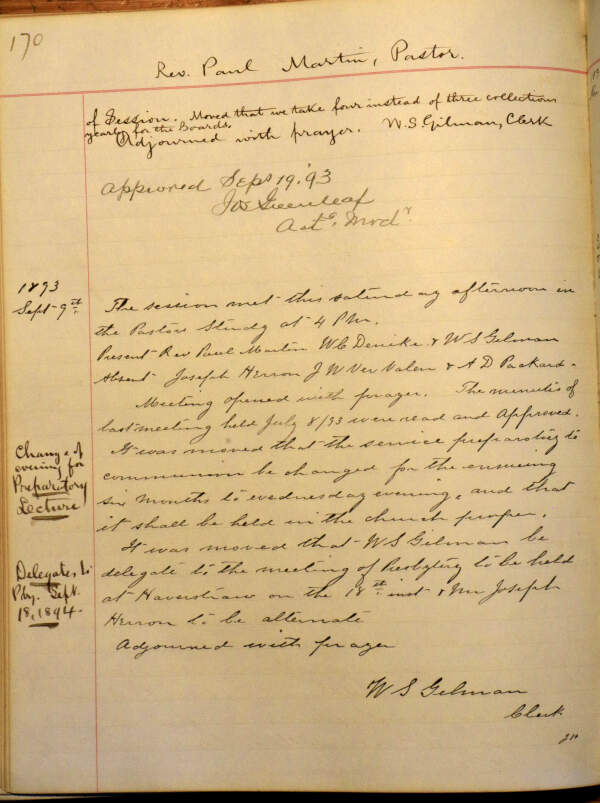 170
Rev. Paul Martin, Pastor.
of Session. Moved that we take four instead of three collections
yearly for the Boards.
Adjourned with prayer. W.S. Gilman, Clerk
Approved Sept 19, '93
Jos Greenleaf
Actg. Modr
1893
Sept 9th.
The session met this saturday afternoon in
the Pastors Study at 4 PM.
Present Rev Paul Martin W C Denike & W S Gilman
Absent Joseph Herron J W Ver Valen & A D Packard.
Meeting opened with prayer. The minutes of
last meeting held July 8/93 were read and Approved.
Change of
evening for
Preparatory
Lecture
It was moved that the service preparatory to
communion be changed for the ensuing
six months to wednesday evening, and that
it shall be held in the church proper.
Delegates to
Pby. Sept.
18, 1894.
It was moved that W S Gilman be
delegate to the meeting of Presbytery to be held
at Haverstraw on the 18th inst & Mr Joseph
Herron to be alternate
Adjourned with prayer
W S Gilman
Clerk